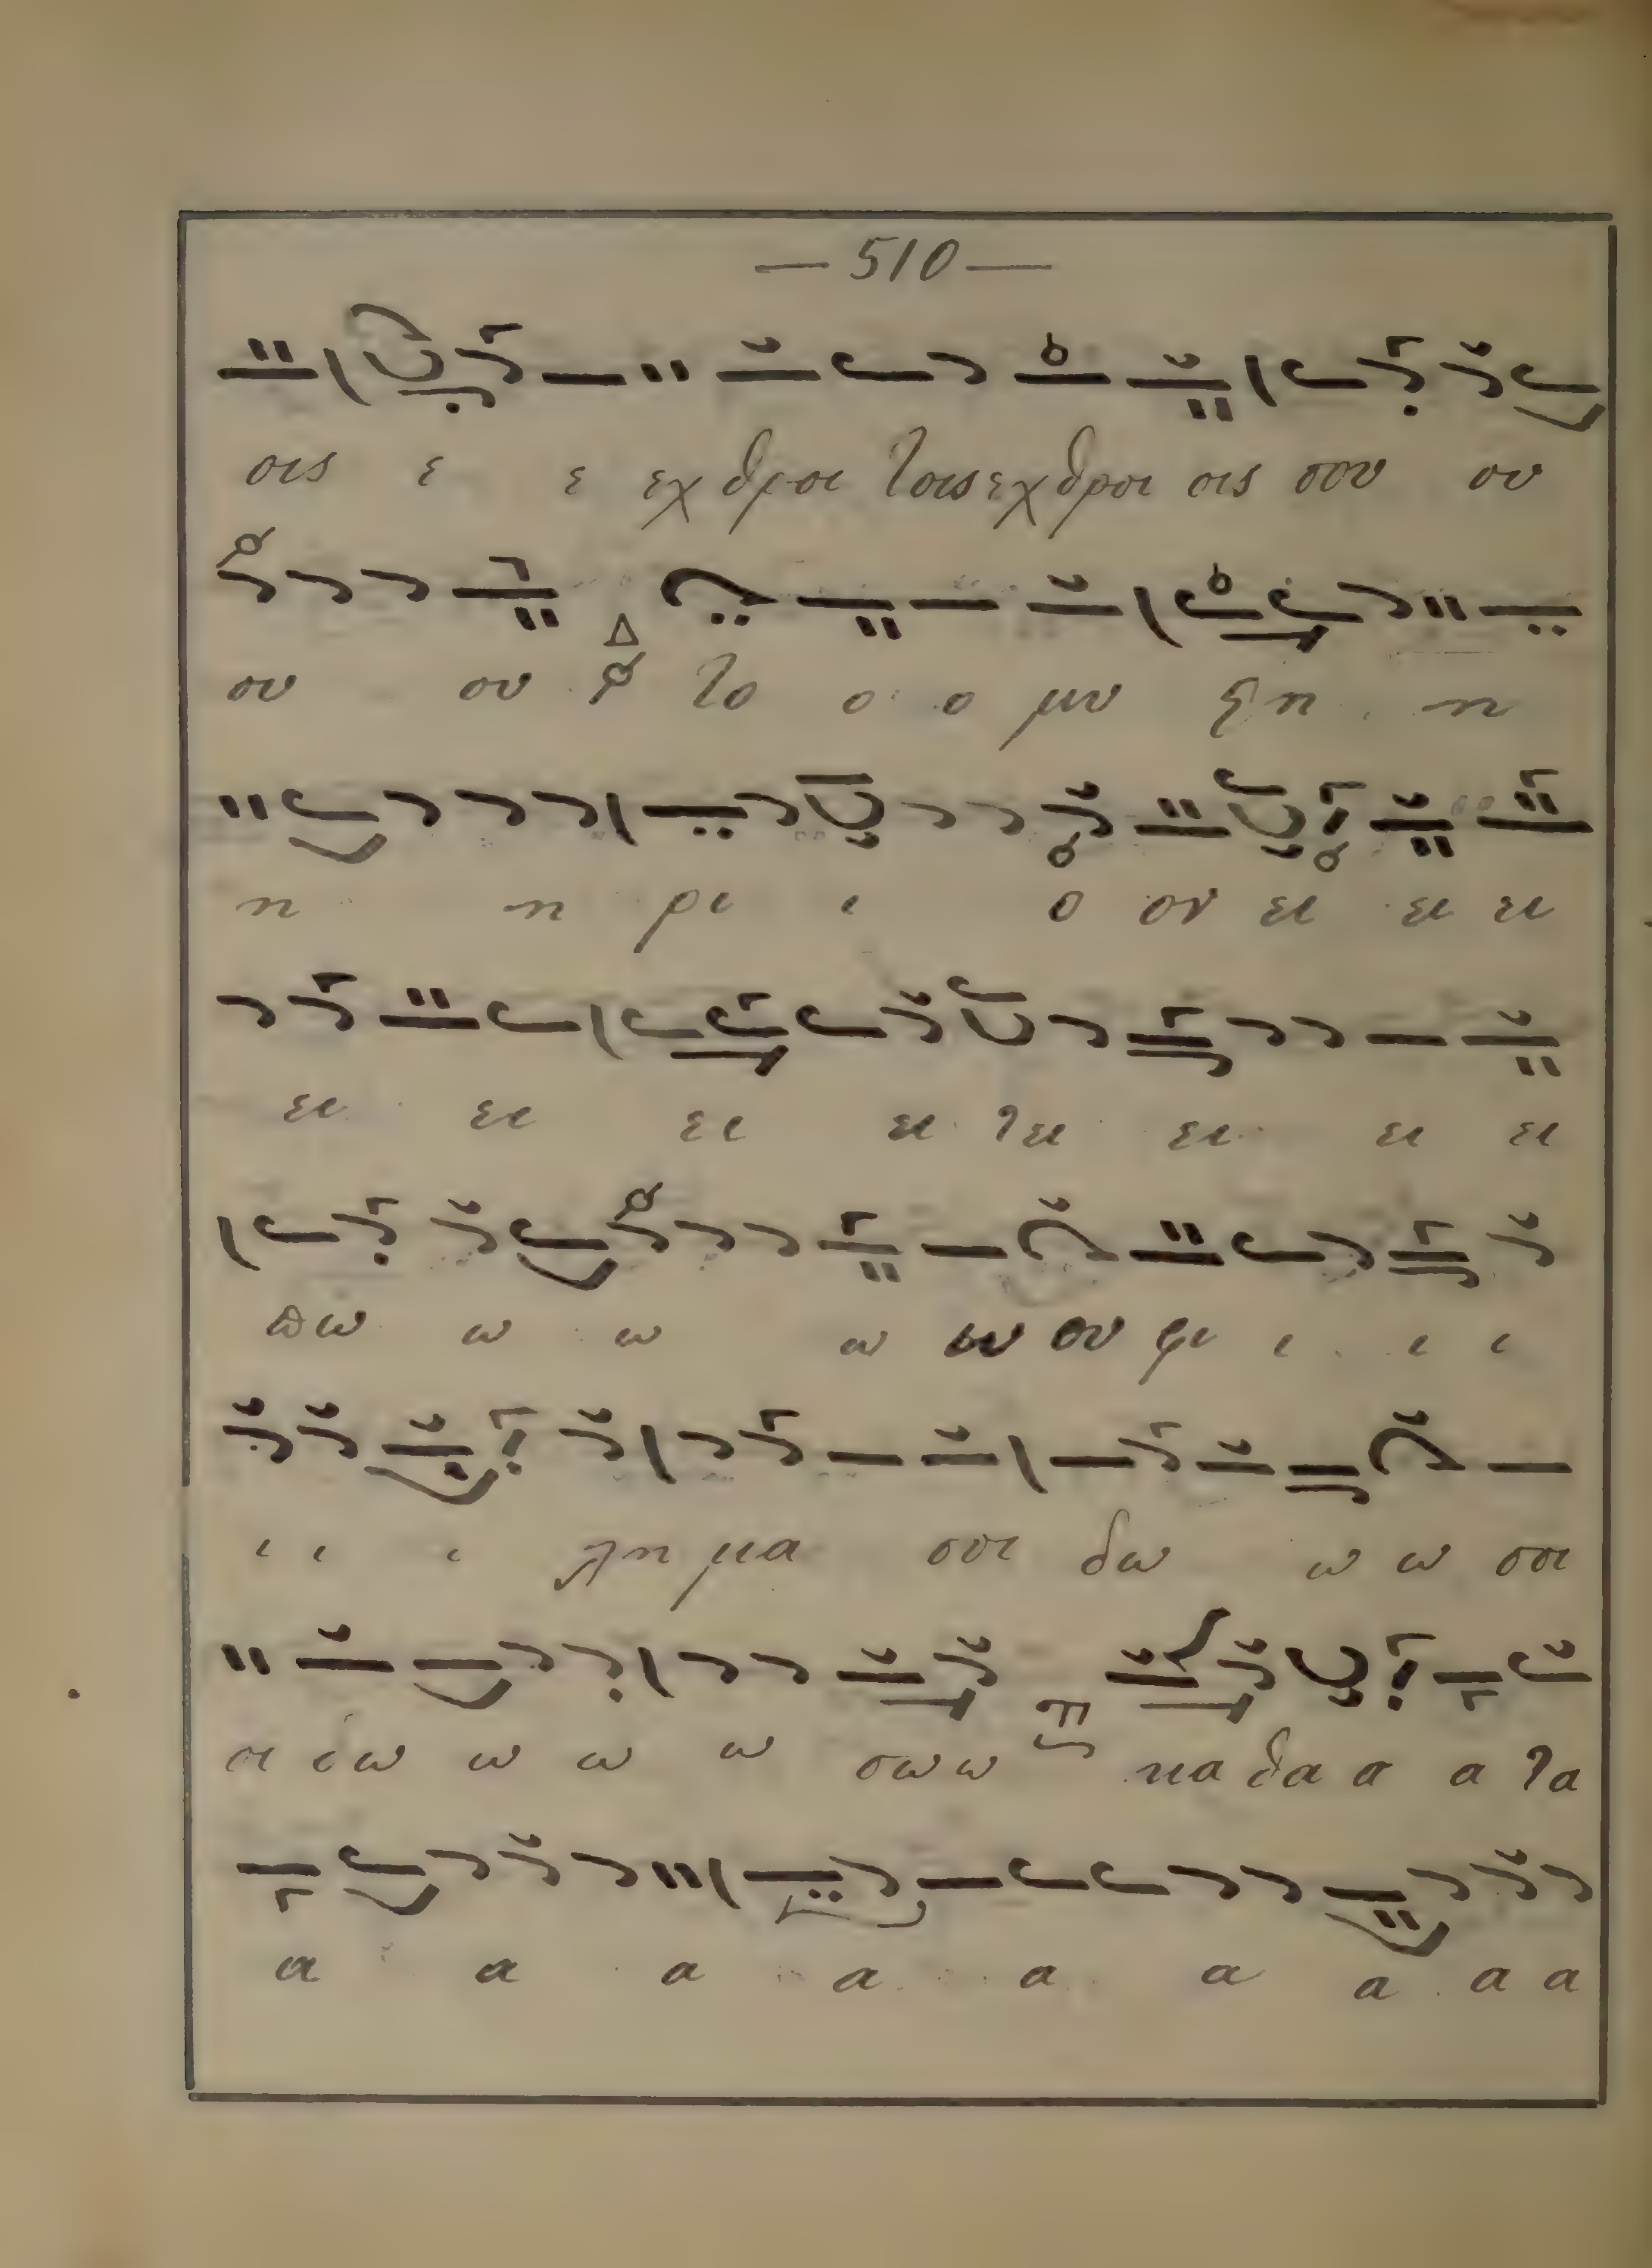 — 510 —
οις ε ε εχθροι τοις εχθροι οις σου ου
ου ου το ο ο μυ ςη η
η η ρι ι ο ον ει ει ει
ει ει ει ει πει ει ει ει
πω ω ω ω ου ου φι ι ι ι
ι ι ι λη μα σοι δω ω ω σοι
οι ω ω ω ω σω ω κα θα α α πα
α α α α α α α α α